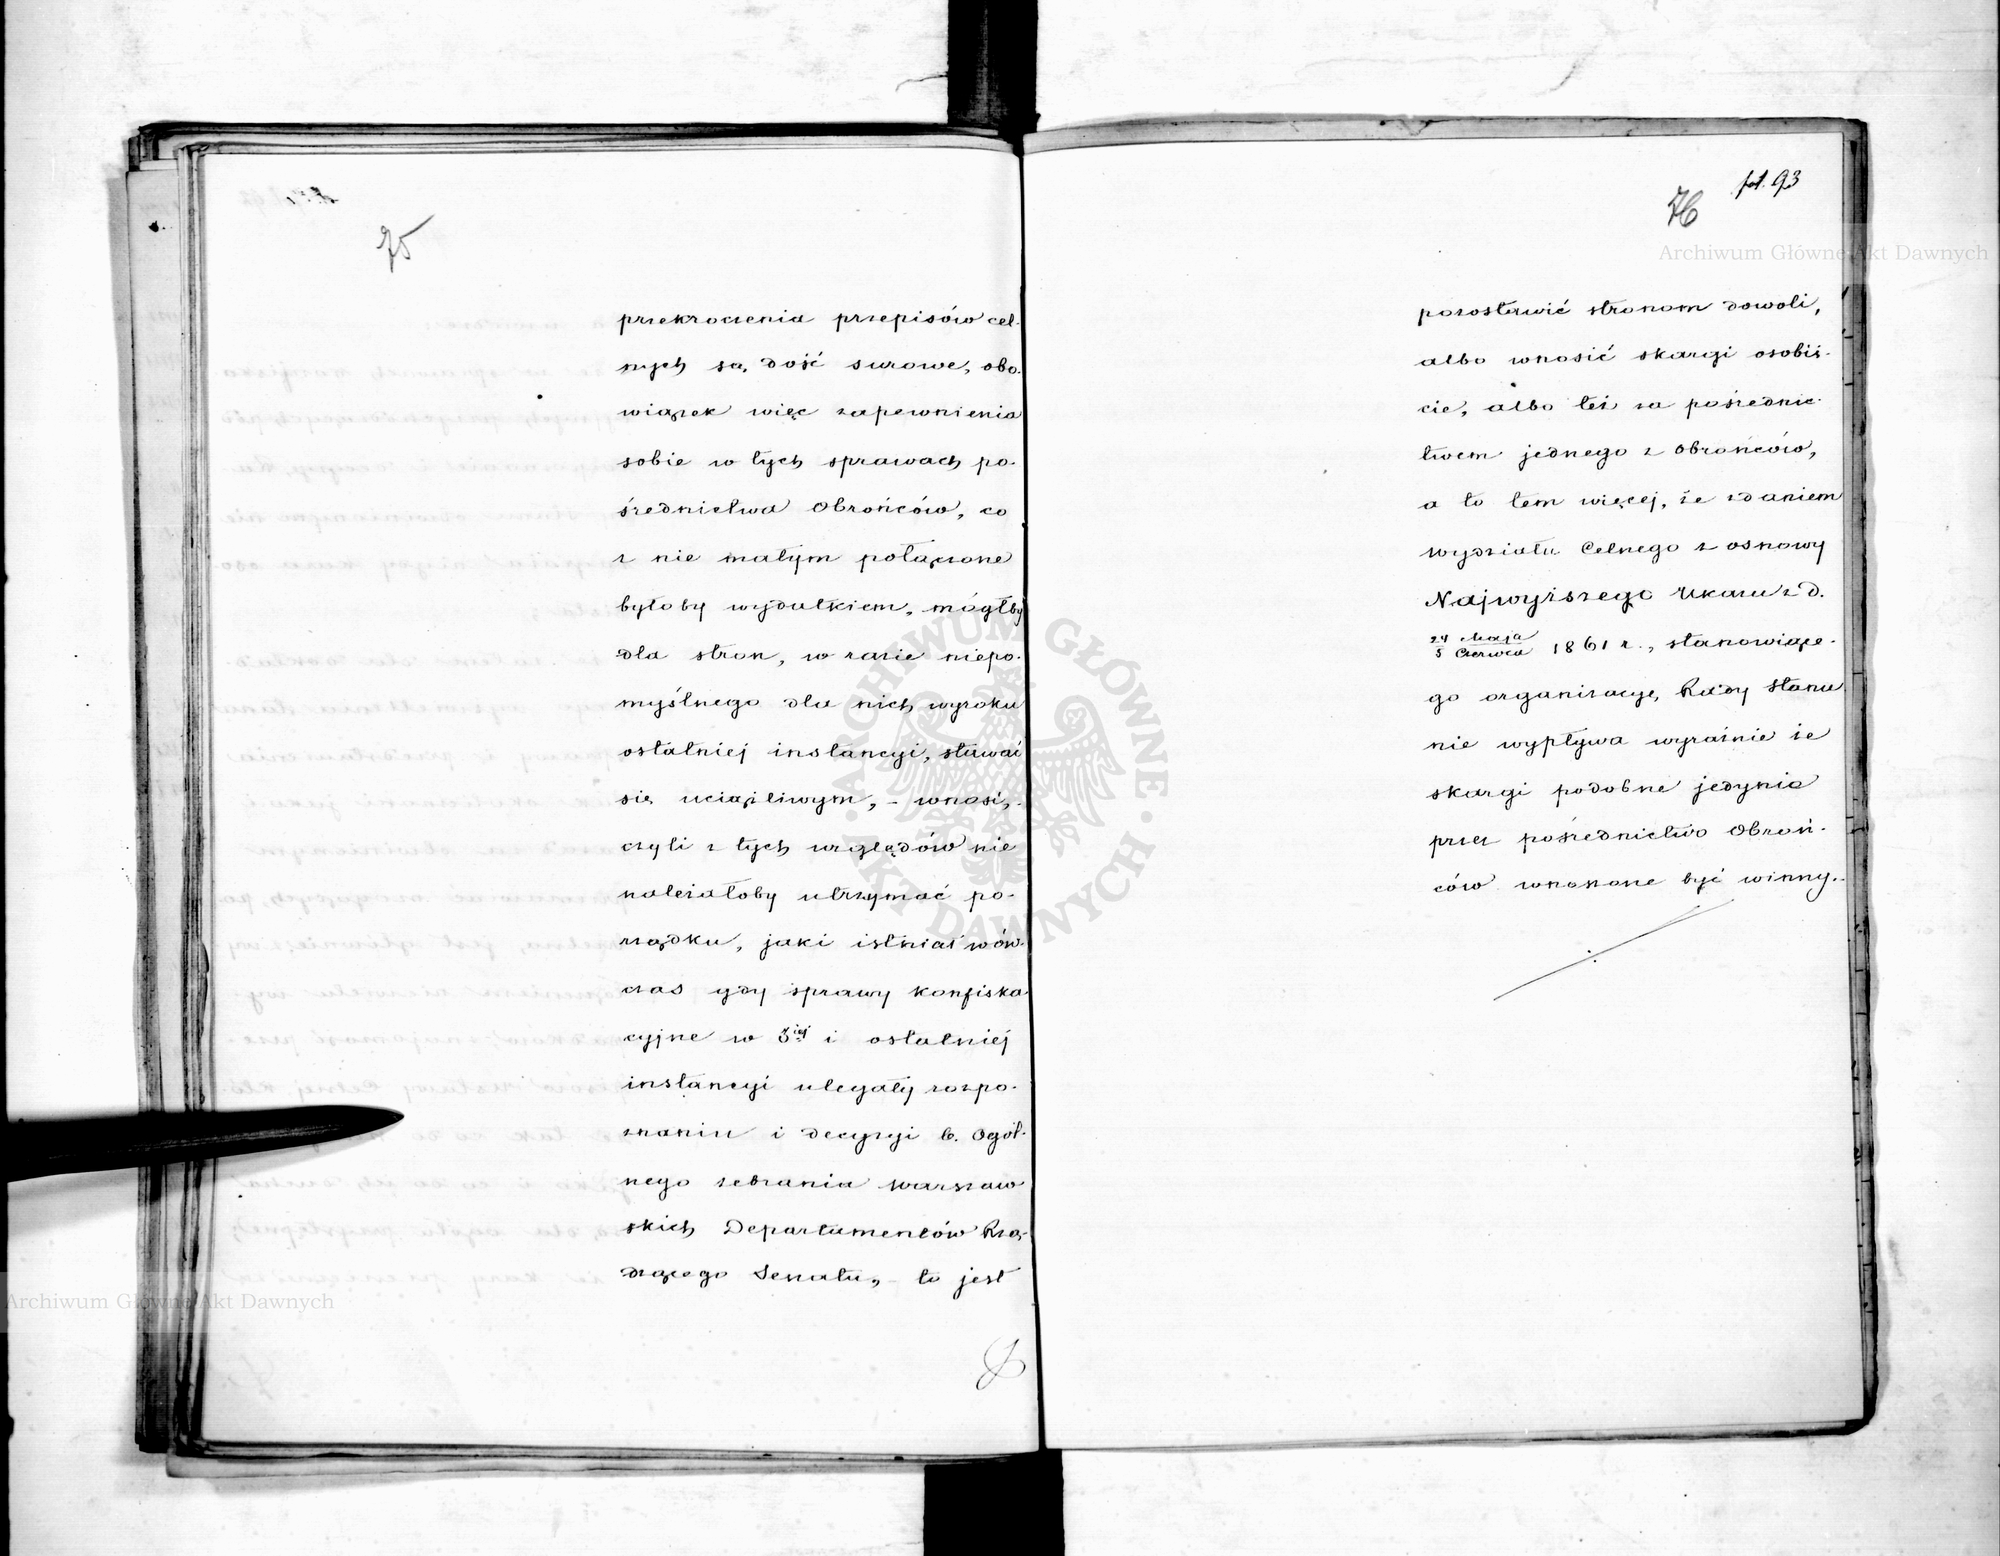 75
przekroczenia przepisów cel-
nych są dość surowe, obo-
wiązek więc zapewnienia
sobie w tych sprawach po-
średnictwa Obrońców, co
z nie małym połączone
byłoby wydatkiem, mógłby
dla stron, w razie niepo-
myślnego dla nich wyroku
ostatniej instancyi, stawać
się uciążliwym, – wnosi, –
czyli z tych względów nie
należałoby utrzymać po-
rządku, jaki istniał wów-
czas gdy sprawy konfiska-
cyjne w 3iej i ostatniej
instancyi ulegały rozpo-
znaniu i decyzyi b. Ogól-
nego zebrania Warszaw
skich Departamentów Rzą-
dzącego Senatu, – to jest
fol. 93
76
pozostawić stronom dowoli,
albo wnosić skargi osobiś-
cie, albo też za pośrednic-
twem jednego z Obrońców,
a to tem więcej, że zdaniem
wydziału Celnego z osnowy
Najwyższego Ukazu z d.
24 Maja
5 Czerwca 1861 r., stanowiące-
go organizacyę Rady Stanu
nie wypływa wyraźnie że
skargi podobne jedynie
przez pośrednictwo Obroń-
ców wnoszone być winny.
Archiwum Główne Akt Dawnych
Archiwum Główne Akt Dawnych
ARCHIWUM GŁÓWNE · AKT DAWNYCH ·